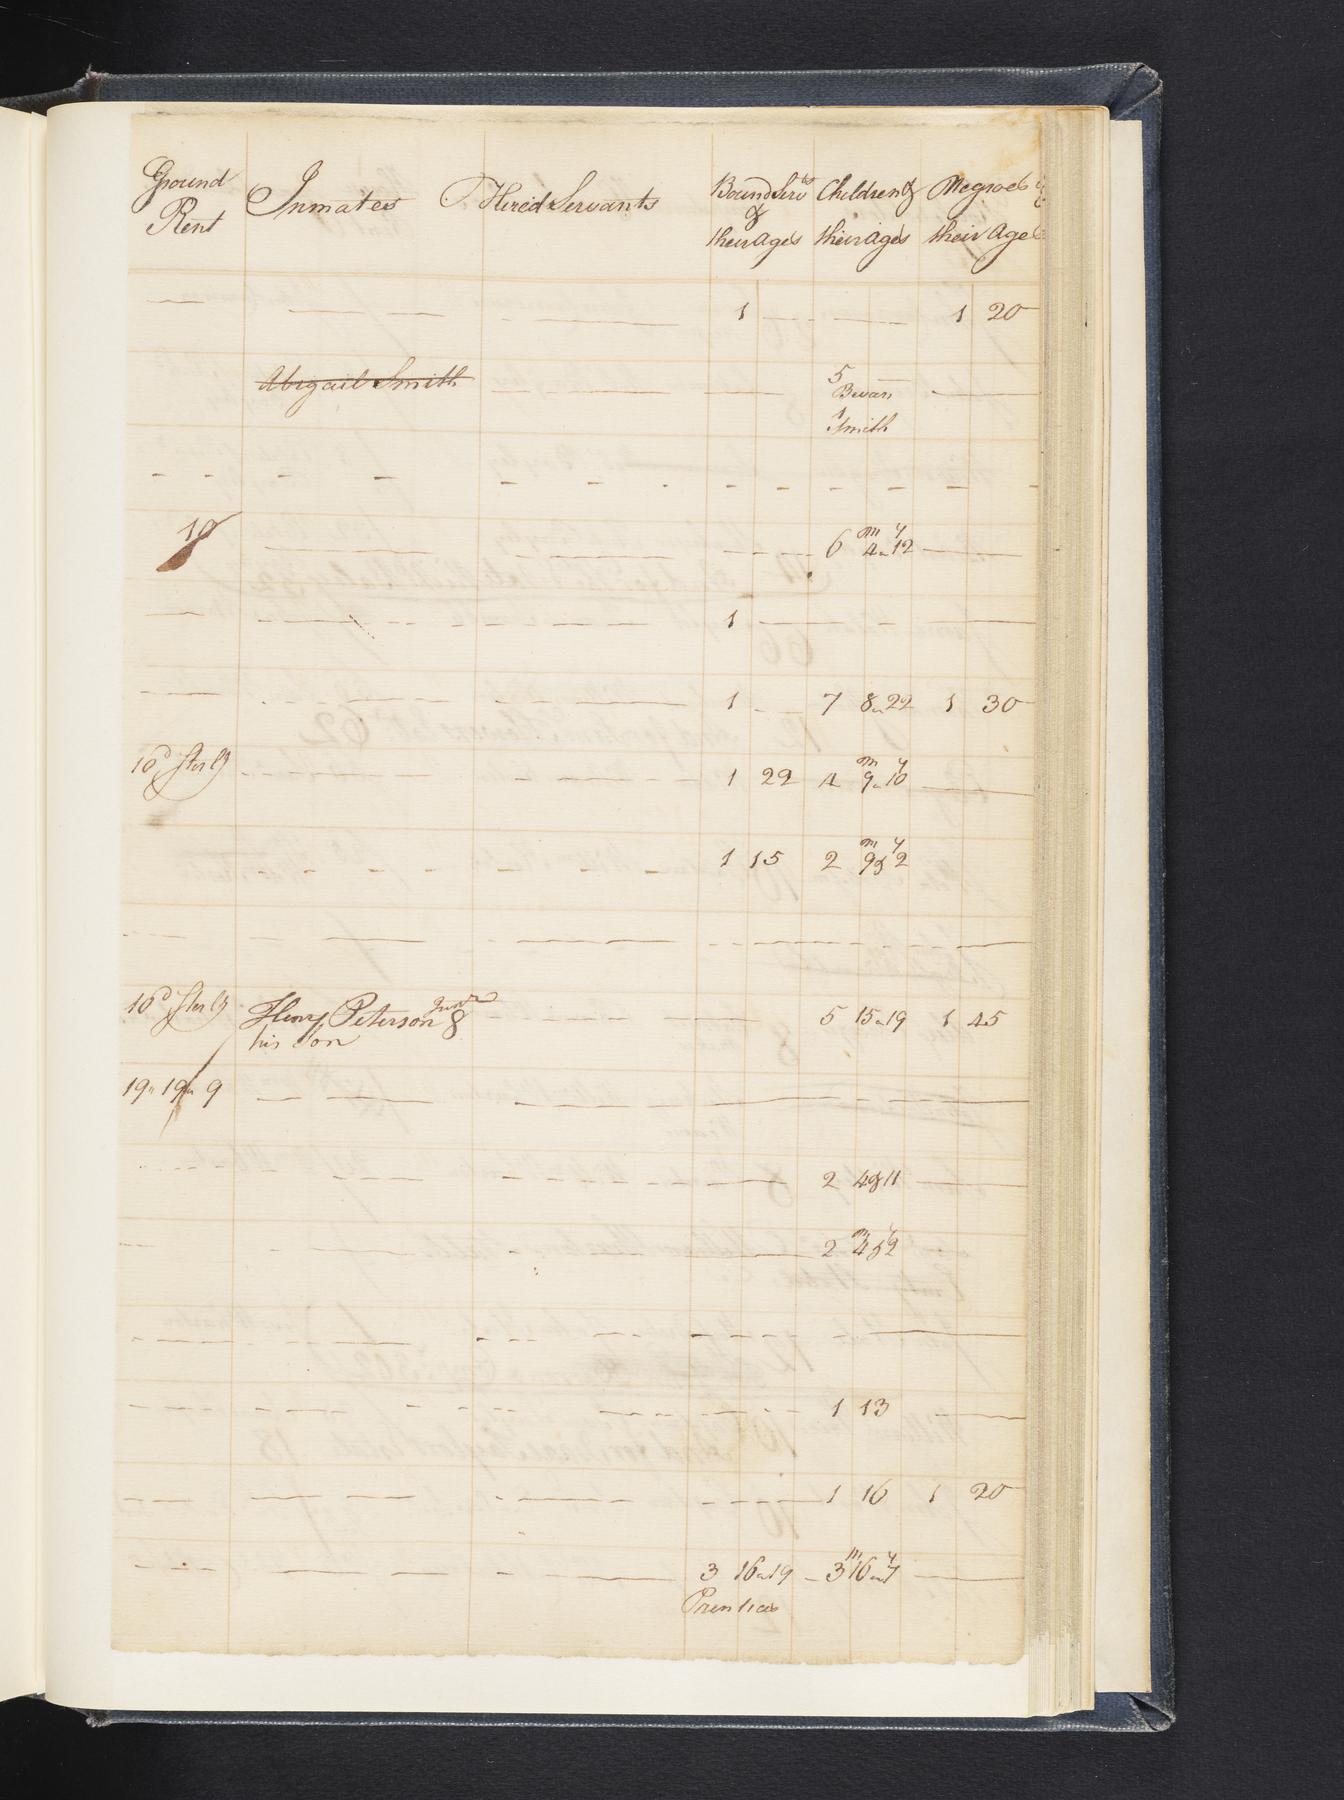 Ground Rent | Inmates | Hired Servants | Bound Servts & their ages | Children & their ages | Negroes & their Ages
— | — — — | — — | 1 — | — — | 1 20
Abigail Smith — — — 5 Bevan —
1 Smith
— — — — — — — — — — —
10 — — — — 6 m 4 a 12 y — —
— — — — — 1 — — — —
— — — — 1 — 7 8 a 22 1 30
10d Sterlg — — — 1 22 4 m 9 a 10 y —
— — — 1 15 2 m 9 & 2 y
— — — — — — — — —
10d Sterlg Henry Peterson Junr & his Son — — — 5 15 a 19 1 45
19 " 19 " 9 — — — — — — —
— — — — 2 4 & 11 —
— — — — 2 m 4 & 2 y
— — — — — — —
— — — — — 1 13 —
— — — — — 1 16 1 20
— — — — 3 16 a 19 — 3 m 16 a 7 y —
Prentices